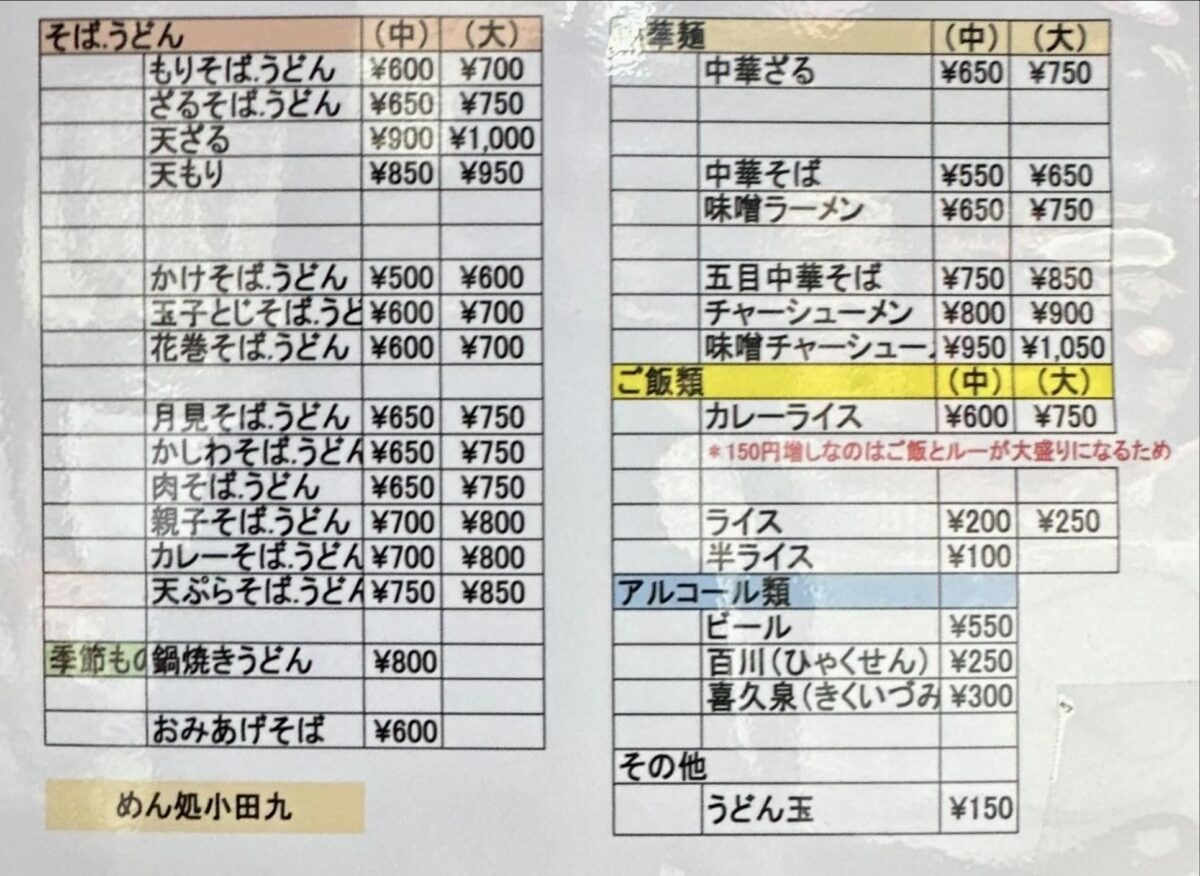 そば.うどん (中) (大)
もりそば.うどん ¥600 ¥700
ざるそば.うどん ¥650 ¥750
天ざる ¥900 ¥1,000
天もり ¥850 ¥950
かけそば.うどん ¥500 ¥600
玉子とじそば.うど ¥600 ¥700
花巻そば.うどん ¥600 ¥700
月見そば.うどん ¥650 ¥750
かしわそば.うどん ¥650 ¥750
肉そば.うどん ¥650 ¥750
親子そば.うどん ¥700 ¥800
カレーそば.うどん ¥700 ¥800
天ぷらそば.うどん ¥750 ¥850
季節もの 鍋焼きうどん ¥800
おみあげそば ¥600
めん処小田九
華麺 (中) (大)
中華ざる ¥650 ¥750
中華そば ¥550 ¥650
味噌ラーメン ¥650 ¥750
五目中華そば ¥750 ¥850
チャーシューメン ¥800 ¥900
味噌チャーシュー ¥950 ¥1,050
ご飯類 (中) (大)
カレーライス ¥600 ¥750
*150円増しなのはご飯とルーが大盛りになるため
ライス ¥200 ¥250
半ライス ¥100
アルコール類
ビール ¥550
百川(ひゃくせん) ¥250
喜久泉(きくいづみ ¥300
その他
うどん玉 ¥150